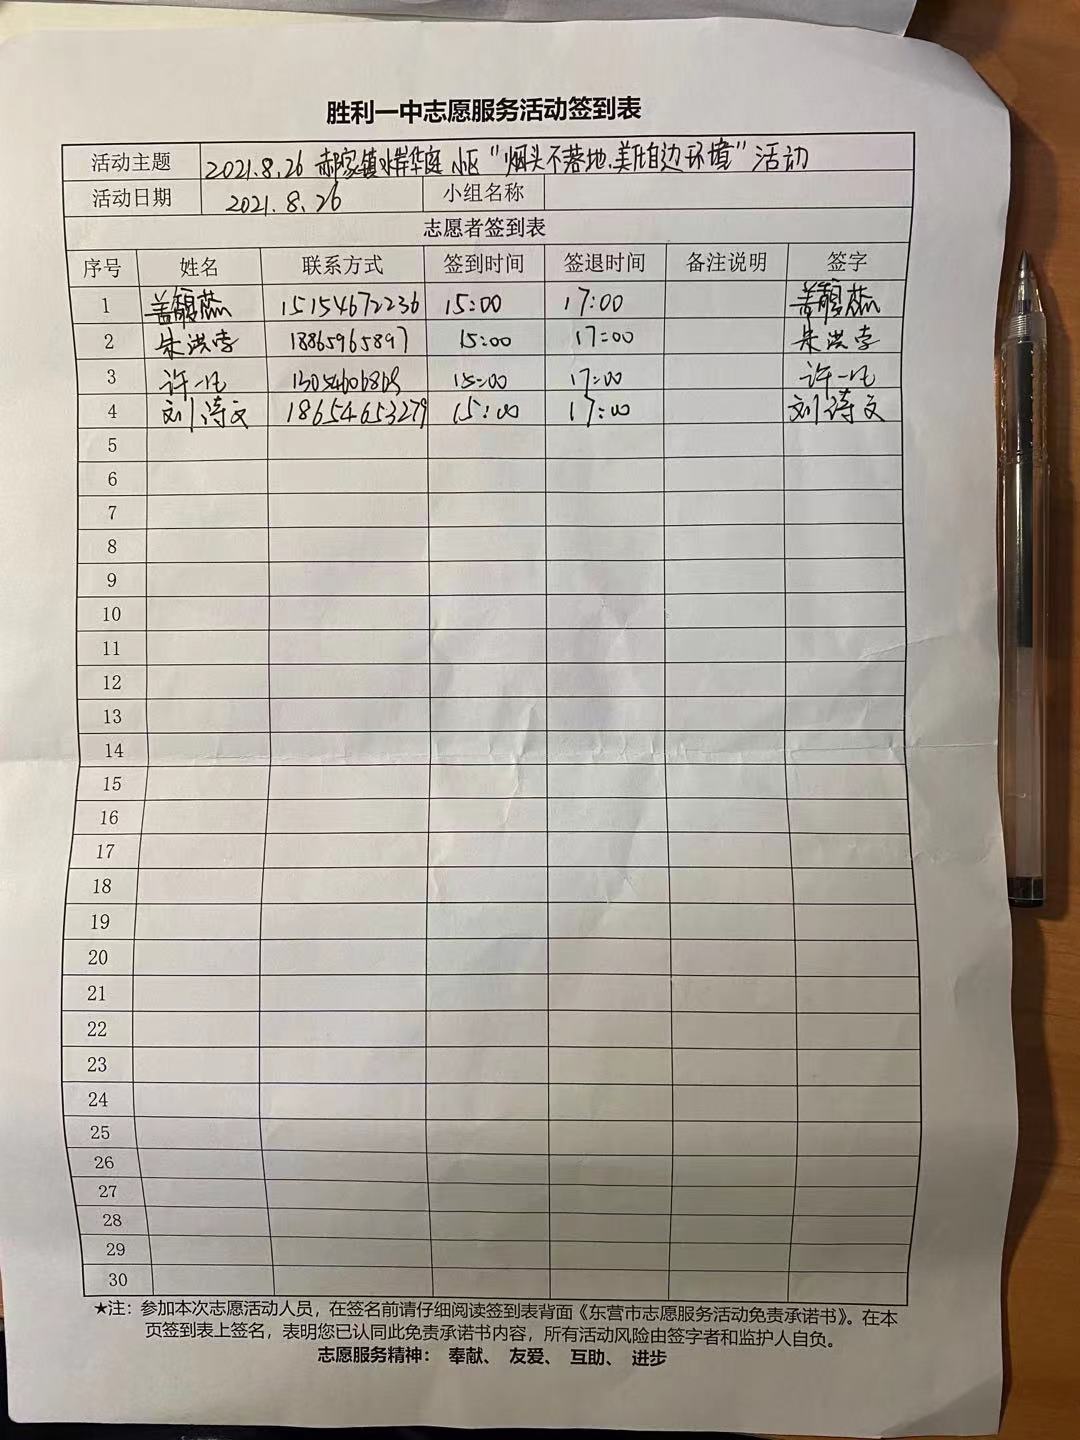 胜利一中志愿服务活动签到表
活动主题 2021.8.26 郝家镇水岸华庭小区“烟头不落地.美化自边环境”活动
活动日期 2021.8.26 小组名称
志愿者签到表
序号 姓名 联系方式 签到时间 签退时间 备注说明 签字
1 盖馥蕊 15154672236 15:00 17:00 盖馥蕊
2 朱洪李 18865965897 15:00 17:00 朱洪李
3 许一凡 13054606869 15:00 17:00 许一凡
4 刘诗文 18654653279 15:00 17:00 刘诗文
5
6
7
8
9
10
11
12
13
14
15
16
17
18
19
20
21
22
23
24
25
26
27
28
29
30
★注：参加本次志愿活动人员，在签名前请仔细阅读签到表背面《东营市志愿服务活动免责承诺书》。在本
页签到表上签名，表明您已认同此免责承诺书内容，所有活动风险由签字者和监护人自负。
志愿服务精神： 奉献、 友爱、 互助、 进步